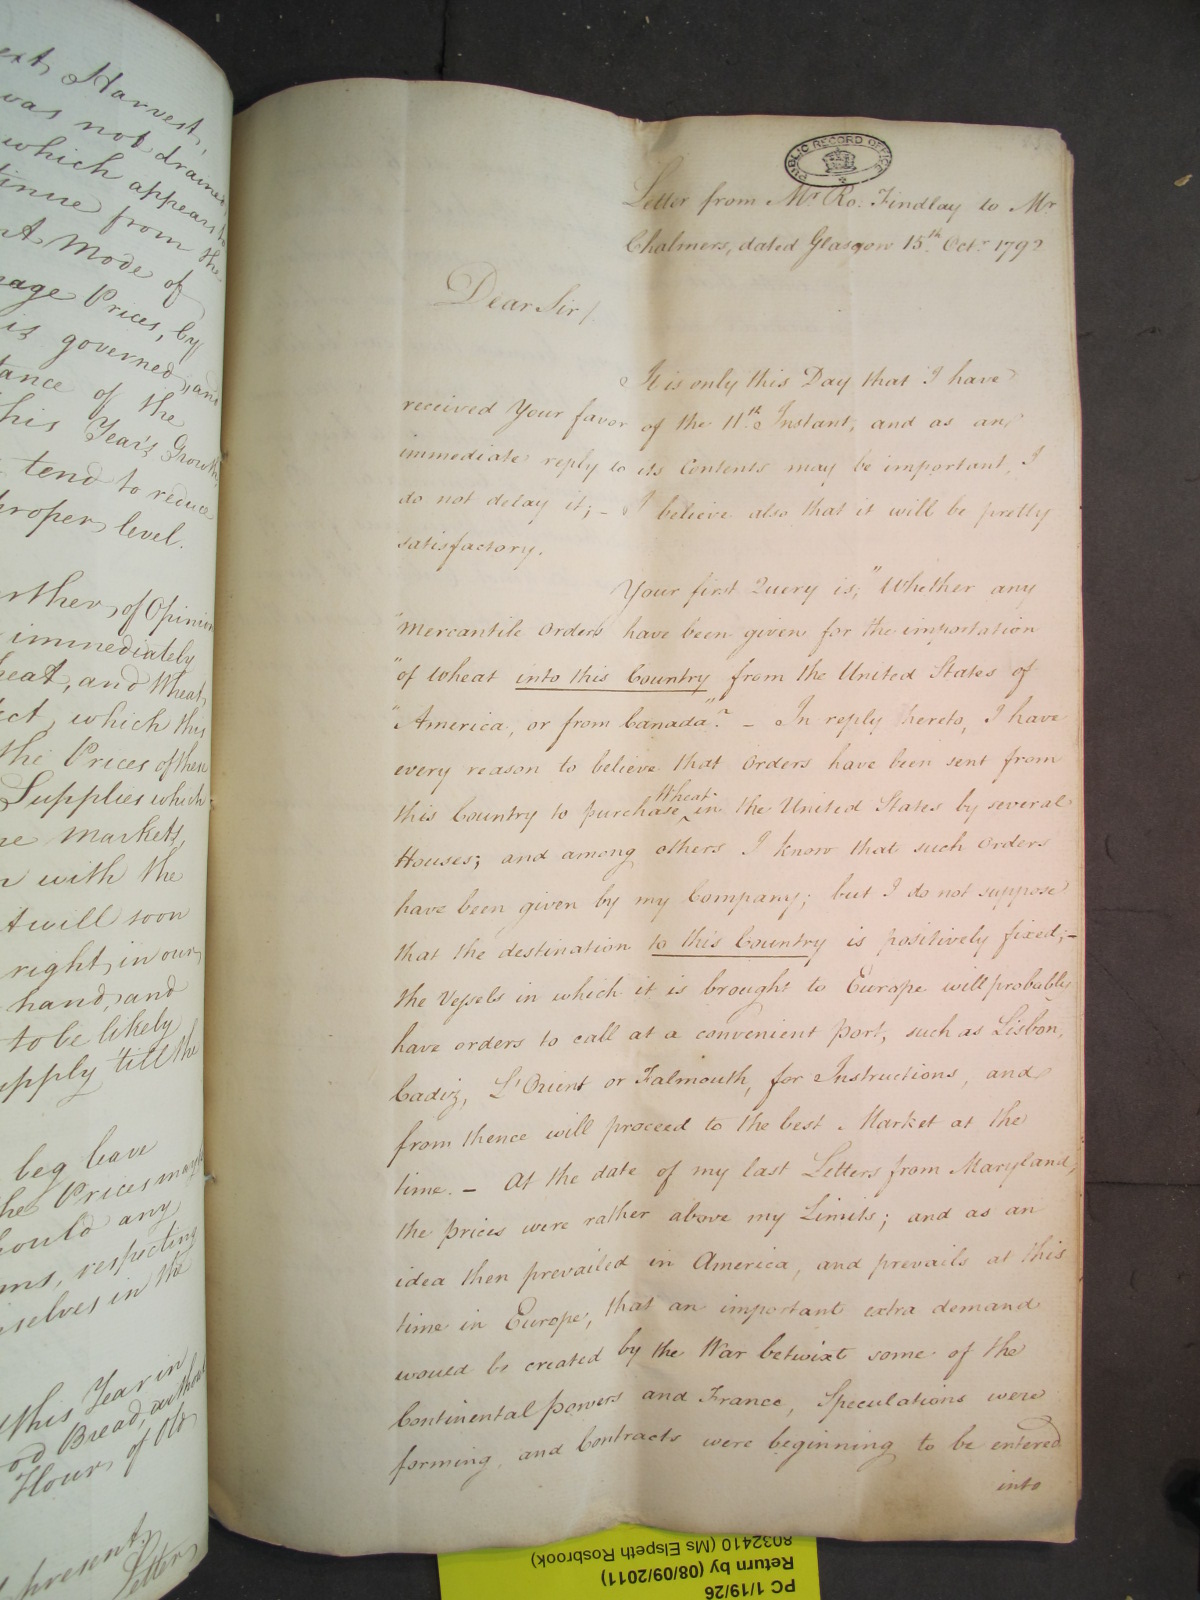 ext Harvest,
was not drained
which appears to
tinue from the
nt Mode of
rage Prices, by
is governed, and
tance of the
his Year's Growth,
tend to reduce
proper level.
rther, of Opinion
immediately
heat, and Wheat,
ect, which this
the Prices of these
Supplies which
he Markets,
n with the
t will soon
right, in our
hand, and
to be likely
upply 'till the
beg leave
he Prices may be
hould any
ms, respecting
selves in the
this Year in
od Bread, without
Flour, of Old
present.
Letter
PUBLIC RECORD OFFICE
Letter from Mr. Ro. Findlay to Mr
Chalmers, dated Glasgow 15th. Octr. 1792
Dear Sir/.
It is only this Day that I have
received Your favor of the 11th. Instant, and as an
immediate reply to its Contents may be important, I
do not delay it; – I believe also that it will be pretty
satisfactory.
Your first Query is, "Whether any
"Mercantile Orders have been given for the importation
"of Wheat into this Country from the United States of
"America, or from Canada"? – In reply thereto, I have
every reason to believe that Orders have been sent from
this Country to purchase ^Wheat in the United States by several
Houses; and among others I know that such Orders
have been given by my Company; but I do not suppose
that the destination to this Country is positively fixed; –
the Vessels in which it is brought to Europe will probably
have orders to call at a convenient port, such as Lisbon,
Cadiz, L'Orient or Falmouth, for Instructions, and
from thence will proceed to the best Market at the
time. – At the date of my last Letters from Maryland,
the prices were rather above my Limits; and as an
idea then prevailed in America, and prevails at this
time in Europe, that an important extra demand
would be created by the War betwixt some of the
Continental Powers and France, Speculations were
forming, and Contracts were beginning to be entered
into
PC 1/19/26
Return by (08/09/2011)
8032410 (Ms Elspeth Rosbrook)